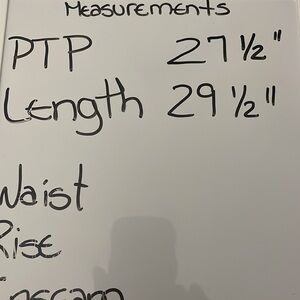 Measurements
PTP 27 1/2"
Length 29 1/2"
Waist
Rise
Inseam